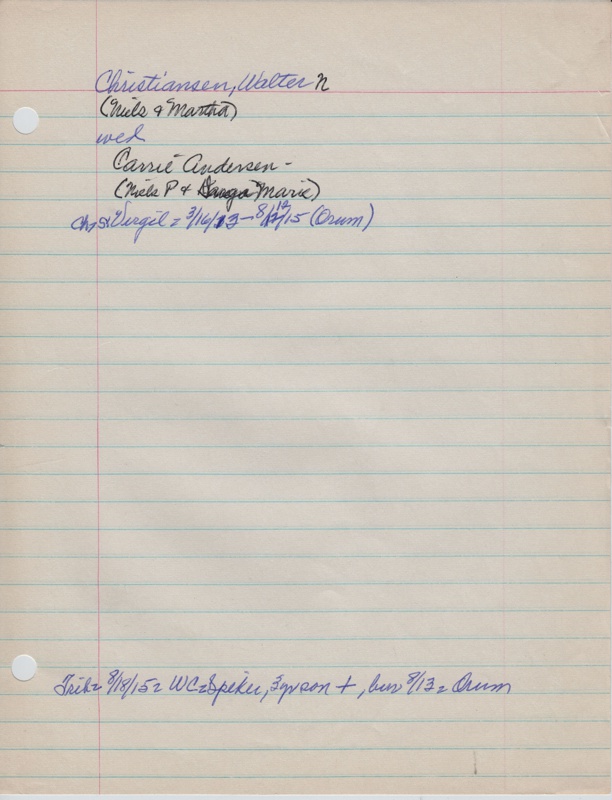 Christiansen, Walter N
(Niels & Martha)
wed
Carrie Andersen -
(Niels P & Marie)
Virgil = 3/16/13 - 8/12/15 (Orum)
Trib = 8/18/15 = WC = Spiker, 3 yr son +, bur 8/13 = Orum